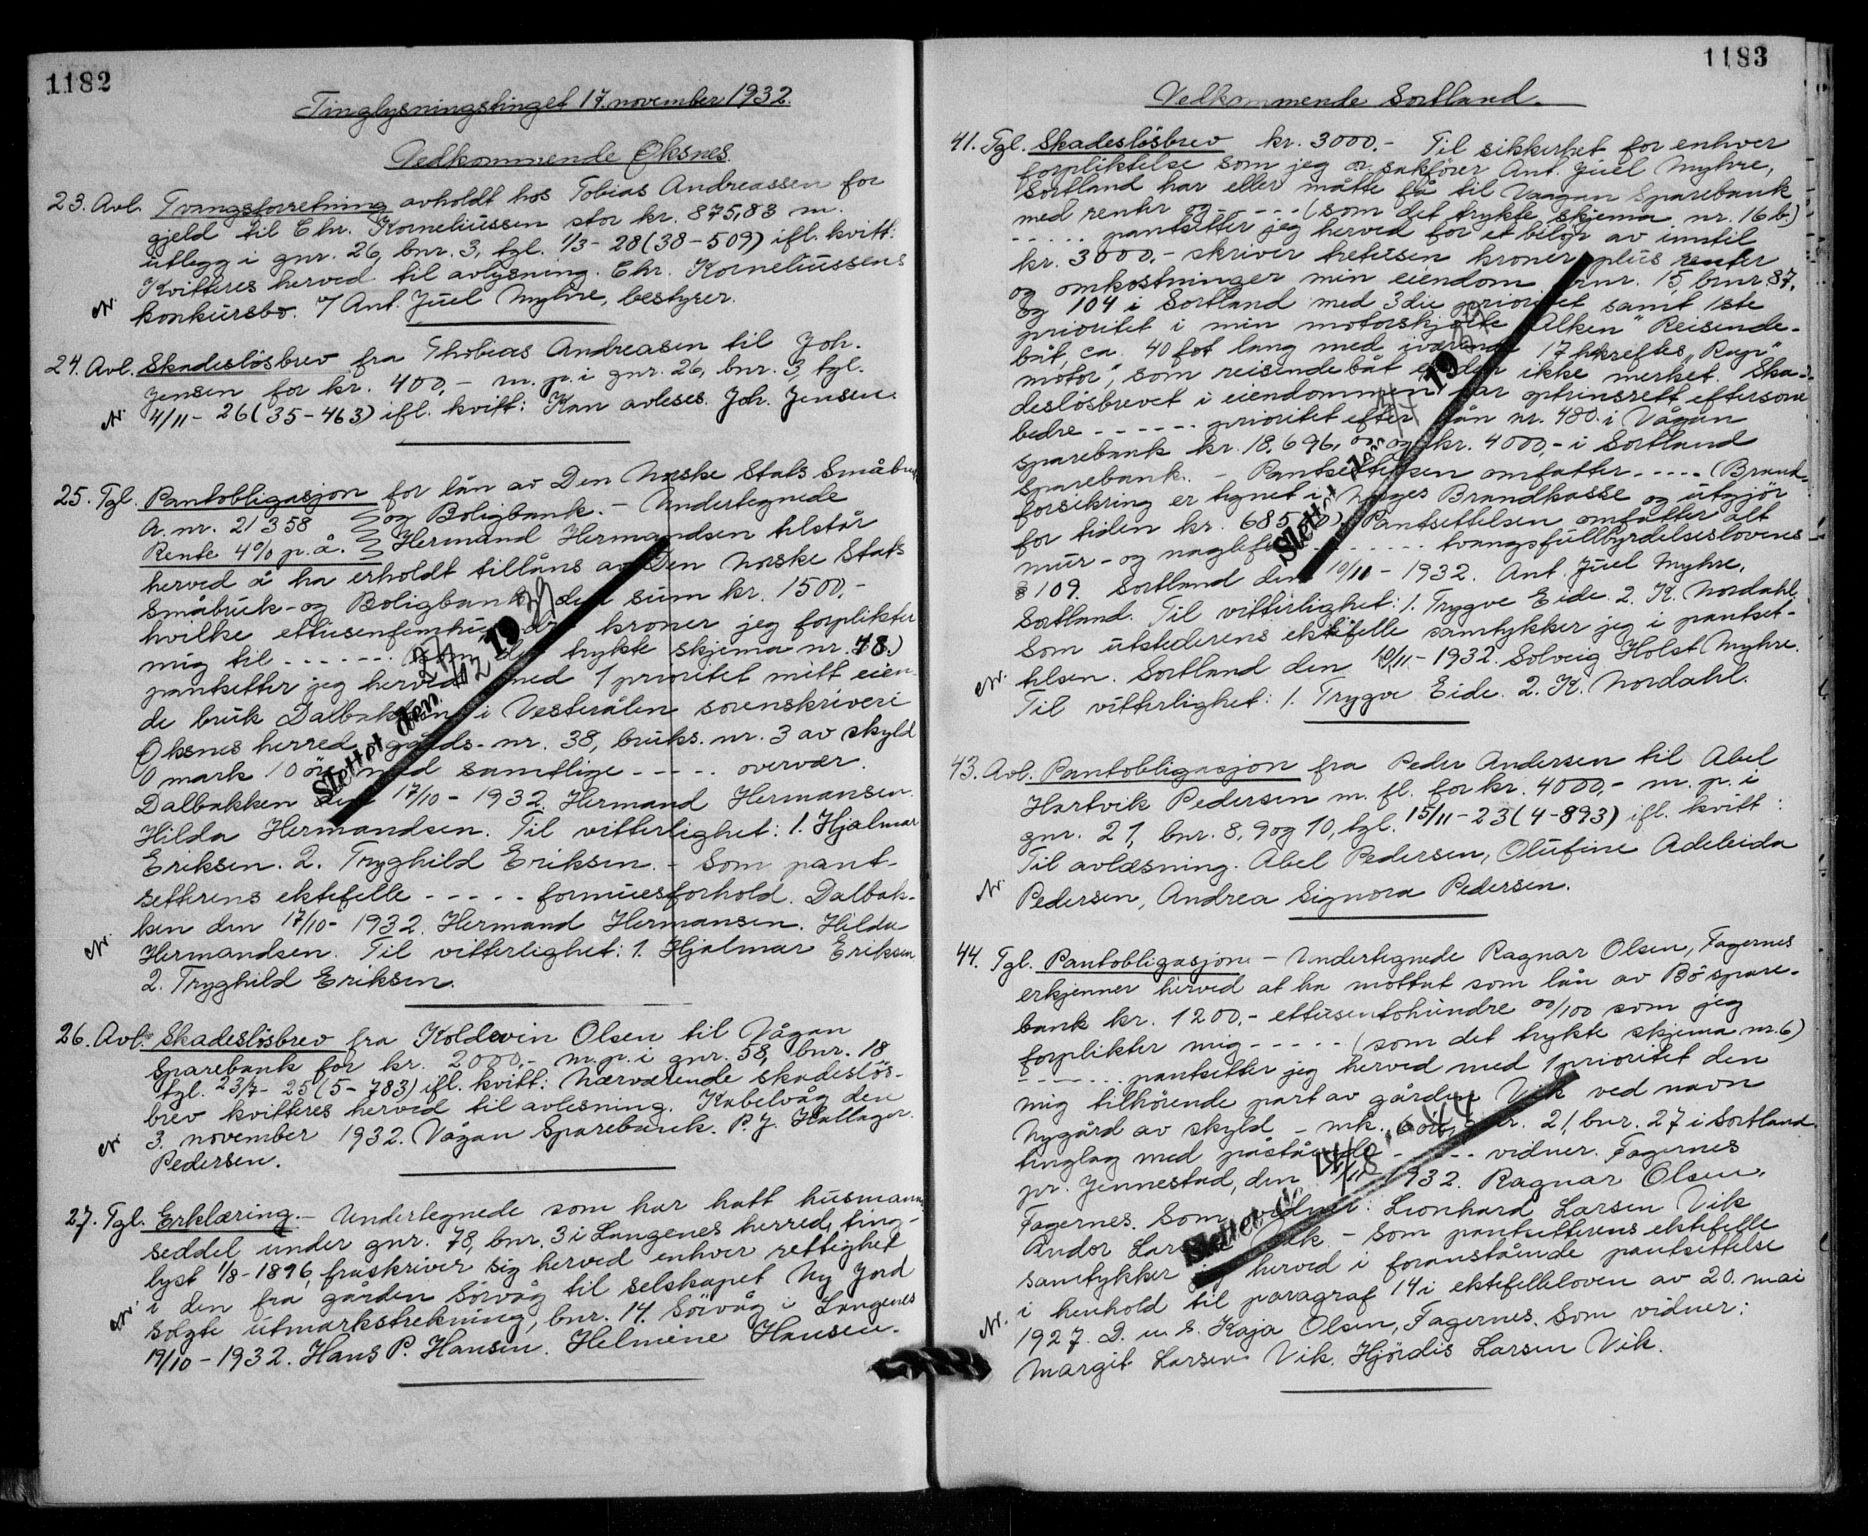 1182
Tinglysningstinget 17. november 1932.
Vedkommende Øksnes.
23. Avl. Tvangsforretning avholdt hos Tobias Andreassen for
gjeld til Chr. Korneliussen stor kr. 875,83 m.
utlegg i gnr. 26, bnr. 3, tgl. 1/3-28 (38-509) ifl. kvitt:
Kvitteres herved til avlysning. Chr. Korneliussens
konkursbo. Ant. Juel Myhre, bestyrer.
24. Avl. Skadesløsbrev fra Thobias Andreasen til Joh.
Jensen for kr. 400,- m. p. i gnr. 26, bnr. 3, tgl.
4/11-26 (35-463) ifl. kvitt: Kan avleses. Joh. Jensen.
25. Tgl. Pantobligasjon for lån av Den Norske Stats Småbruk
A. nr. 21358 og Boligbank. - Undertegnede
Rente 4% p. å. Hermand Hermandsen tilstår
herved å ha erholdt tillåns av Den Norske Stats
Småbruk- og Boligbank den sum kr. 1500,-
hvilke ettusenfemhundre kroner jeg forplikter
mig til ------- (som det trykte skjema nr. 48.)
pantsetter jeg herved med 1 prioritet mitt eien-
de bruk Dalbakken i Vesterålen sorenskriveri
Øksnes herred gårds-nr. 38, bruks. nr. 3 av skyld
0 mark 10 øre med samtlige ----- overvær.
Dalbakken den 17/10-1932. Hermand Hermansen.
Hilda Hermandsen. Til vitterlighet: 1. Hjalmar
Eriksen. 2. Tryghild Eriksen. - Som pant-
setterens ektefelle ----- formuesforhold. Dalbak-
ken den 17/10-1932. Hermand Hermansen. Hilda
Hermandsen. Til vitterlighet: 1. Hjalmar Eriksen
2. Tryghild Eriksen.
Slettet den 19
26. Avl. Skadesløsbrev fra Koldevin Olsen til Vågan
Sparebank for kr. 2000,- m. p. i gnr. 58, bnr. 18
tgl. 23/7-25 (5-783) ifl. kvitt: Nærværende skadesløs-
brev kvitteres herved til avlesning. Kabelvåg den
3. november 1932. Vågan Sparebank. P. J. Hallager.
Pedersen.
27. Tgl. Erklæring. - Undertegnede som har hatt husmanns
seddel under gnr. 78, bnr. 3 i Langenes herred, ting-
lyst 1/8-1896, fraskriver sig herved enhver rettighet
i den fra gården Sörvåg til selskapet Ny Jord
solgte utmarkstrekning, bnr. 14. Sörvåg i Langenes
19/10-1932. Hans P. Hansen. Helmine Hansen.
1183
Vedkommende Sortland.
41. Tgl. Skadesløsbrev kr. 3000.- Til sikkerhet for enhver
forpliktelse som jeg o. sakfører Ant. Juel Myhre,
Sortland har eller måtte få til Vaagan Sparebank
med renter og ----- (som det trykte skjema nr. 16 b.)
----- pantsetter jeg herved for et beløp av inntil
kr. 3000.- skriver tretusen kroner plus renter
og omkostninger min eiendom gnr. 15, bnr. 87,
og 104 i Sortland med 3die prioritet samt 1ste
prioritet i min motorskjøite "Alken" Reisende-
båt, ca. 40 fot lang med iværende 17 hkreftes "Rap"
motor", som reisendebåt er den ikke merket. Ska-
desløsbrevet i eiendommen har optrinsrett eftersom
bedre ------ prioritet efter lån nr. 480. i Vågan
Sparebank kr. 18.696,00 og kr. 4000,- i Sortland
Sparebank. - Pantsettelsen omfatter ----- (Brand
forsikring er tegnet i Norges Brandkasse og utgjør
for tiden kr. 685 Pantsettelsen omfatter alt
mur- og naglefast ------ tvangsfullbyrdelseslovens
§ 109. Sortland den 10/11-1932. Ant. Juel Myhre,
Sortland. Til vitterlighet: 1. Trygve Eide 2. K. Nordahl.
Som utstederens ektefelle samtykker jeg i pantset-
telsen. Sortland den 10/11-1932. Solveig Holst Myhre.
Til vitterlighet: 1. Trygve Eide. 2. K. Nordahl.
Slettet den 19
43. Avl. Pantobligasjon fra Peder Andersen til Abel
Hartvik Pedersen m. fl. for kr. 4000,- m. p. i
gnr. 21, bnr. 8, 9 og 10, tgl. 15/11-23 (4-893) ifl. kvitt:
Til avlæsning. Abel Pedersen, Olufine Adeleida
Pedersen, Andrea Signora Pedersen.
44. Tgl. Pantobligasjon - Undertegnede Ragnar Olsen, Fagernes
erkjenner herved at ha mottat som lån av Bö spare-
bank kr. 1200.- ettusentohundre 00/100 som jeg
forplikter mig ----- (som det trykte skjema nr. 6)
------- pantsetter jeg herved med 1 prioritet den
mig tilhørende part av gården Vik ved navn
Nygård av skyld - mk. 6 øre, gnr. 21, bnr. 27 i Sortland
tinglag med påstående ---- vidner. Fagernes
pr. Jennestad, den /11 1932. Ragnar Olsen,
Fagernes. Som vidner: Leonhard Larsen Vik
Andor Larsen Vik. - Som pantsetterens ektefelle
samtykker jeg herved i foranstående pantsettelse
i henhold til paragraf 14 i ektefelleloven av 20. mai
1927. D. u. s. Kaja Olsen, Fagernes. Som vidner:
Margit Larsen Vik. Hjørdis Larsen Vik.
Slettet den